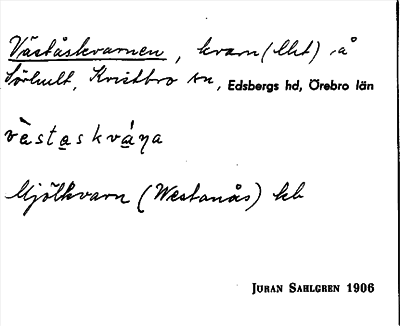 Väståskvarnen, kvarn (lht) å
Sörhult, Kvistbro sn, Edsbergs hd, Örebro län
vèstaskváɳa
Mjölkvarn (Westanås) kb
JURAN SAHLGREN 1906